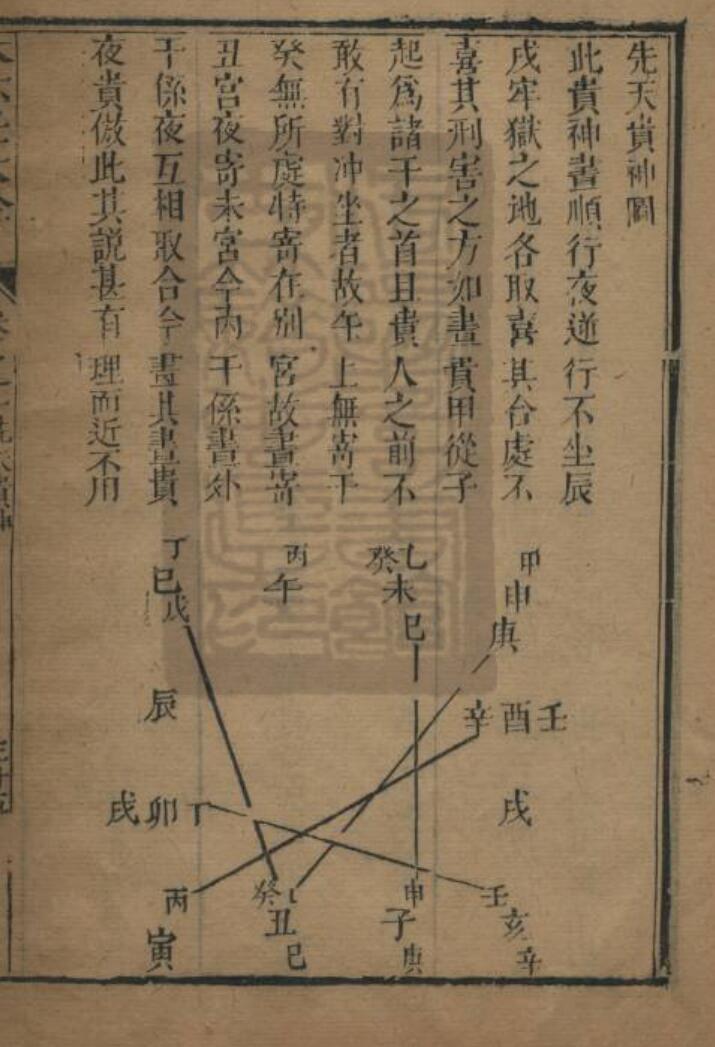 先天貴神圖
此貴神晝順行夜逆行不坐辰
戌牢獄之地各取喜其合處不
喜其刑害之方如晝貴甲從子
起爲諸干之首且貴人之前不
敢有對冲坐者故午上無寄干
癸無所處特寄在別宮故晝寄
丑宮夜寄未宮今丙干係晝外
干係夜互相取合今畫其晝貴
夜貴倣此其説甚有理而近不用
甲申庚
乙癸未巳
丙午
丁巳戊
壬酉辛
辰
戌
丁卯戌
壬亥辛
申子庚
癸乙丑巳
丙寅